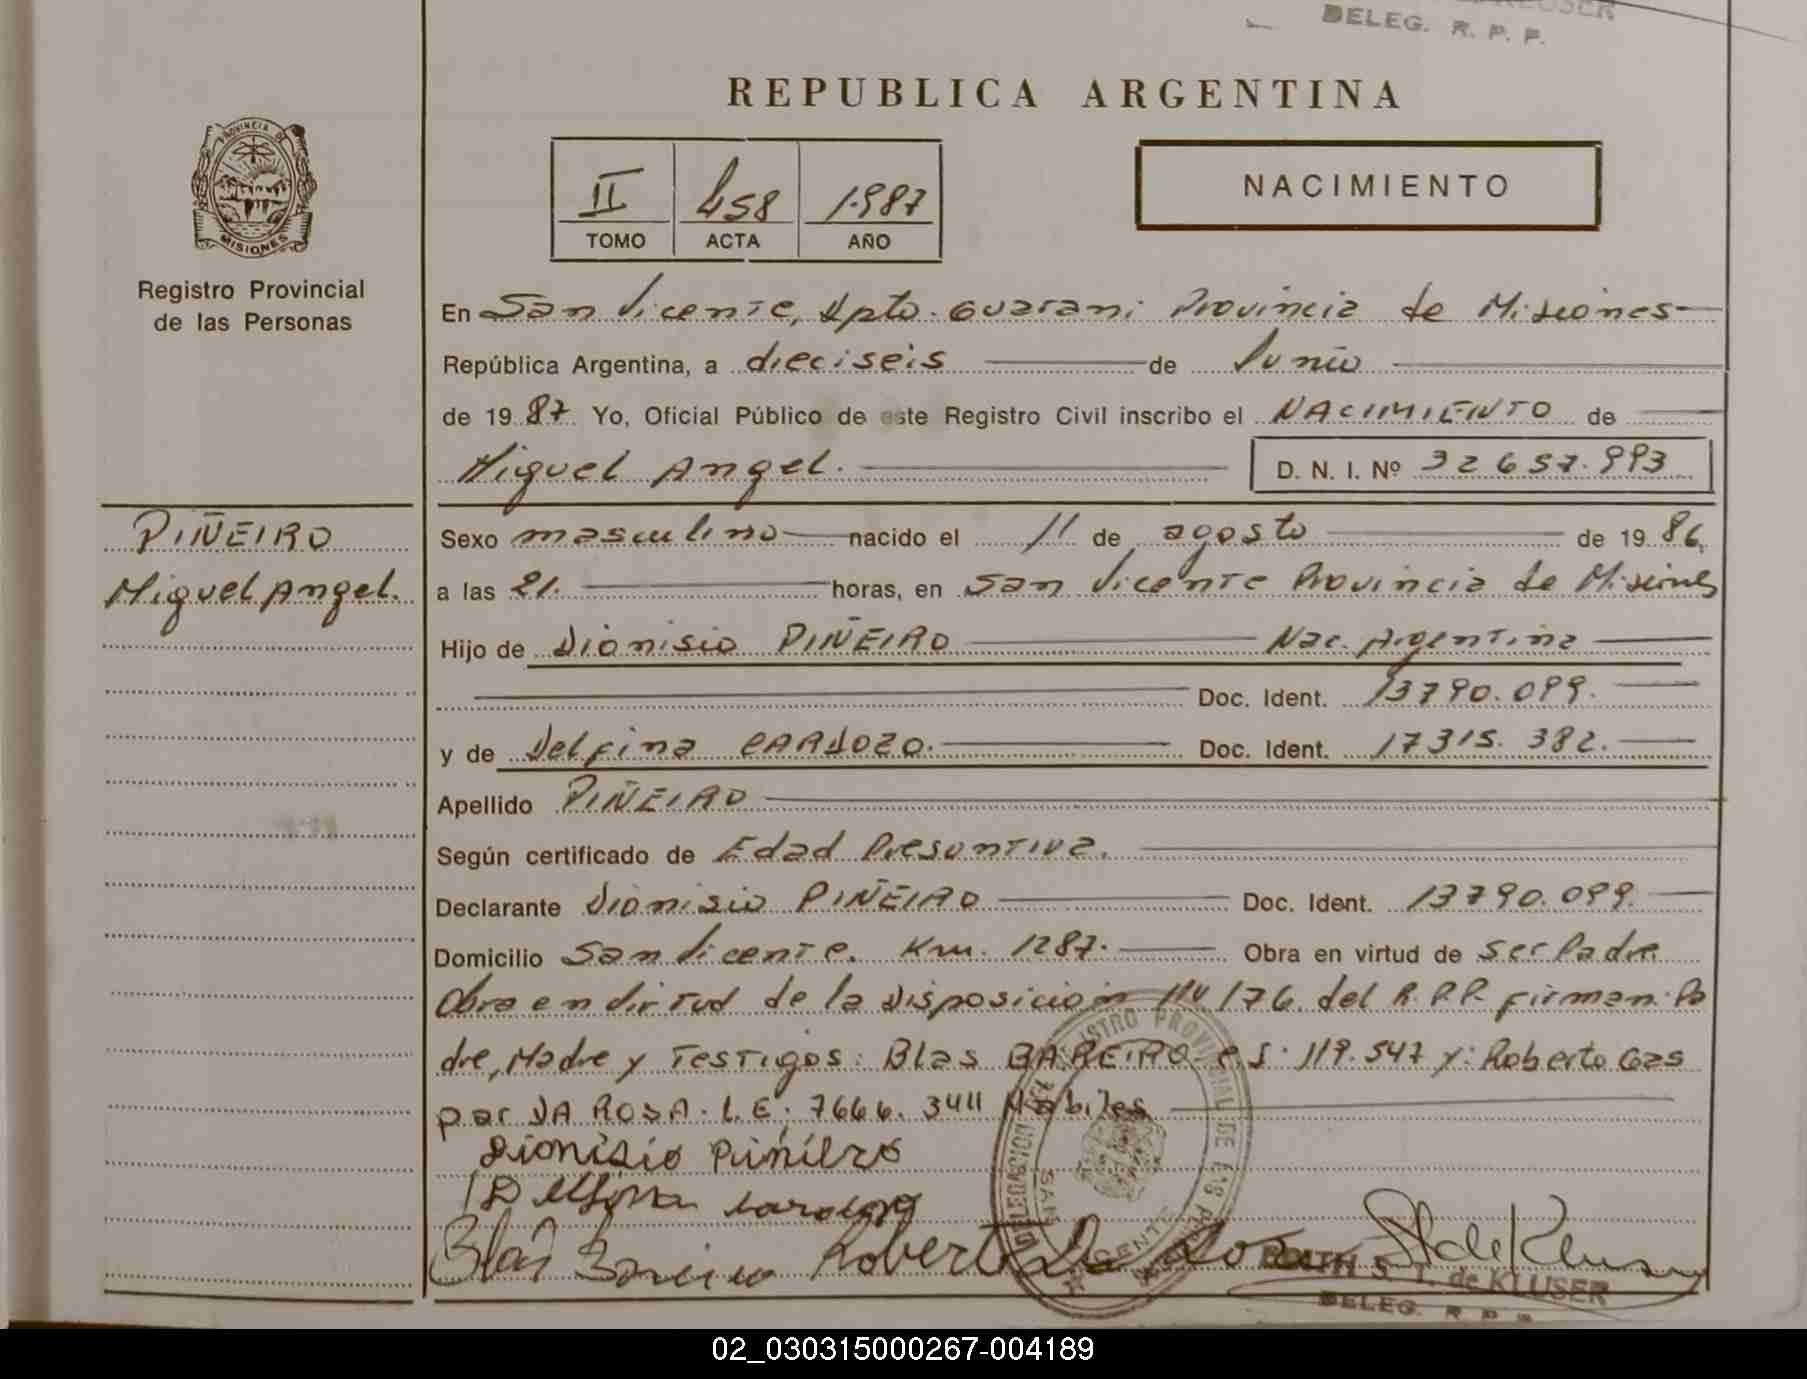 DELEG. R. P. P.
REPUBLICA ARGENTINA
PROVINCIA DE
MISIONES
II 458 1.987
TOMO ACTA AÑO
NACIMIENTO
Registro Provincial
de las Personas
En San Vicente, Dpto. Guarani Provincia de Misiones
República Argentina, a dieciseis de Junio
de 19 87 Yo, Oficial Público de este Registro Civil inscribo el NACIMIENTO de
Miguel Angel. D. N. I. Nº 32657.993
PIÑEIRO
Miguel Angel.
Sexo masculino nacido el 11 de agosto de 19 86,
a las 21. horas, en San Vicente Provincia de Misiones
Hijo de Dionisio PIÑEIRO Nac. Argentina
Doc. Ident. 13790.099.
y de Delfina CARDOZO. Doc. Ident. 17315.382.
Apellido PIÑEIRO
Según certificado de Edad Presuntiva.
Declarante Dionisio PIÑEIRO Doc. Ident. 13790.099.
Domicilio San Vicente. Km. 1287. Obra en virtud de ser Padre
Obra en virtud de la Disposición 114/76. del R.P.P. firman: Pa
dre, Madre y Testigos: Blas BAREIRO 119.547 y: Roberto Gas
par DA ROSA. L.E. 7666.3411 Habiles
Dionisio Piñeiro
Delfina Cardozo
Blas Bareiro Roberto Da Rosa
DELEGACION REGISTRO PROVINCIAL DE LAS PERSONAS
SAN VICENTE
S. T. de KLUSER
DELEG. R. P. P.
02_030315000267-004189